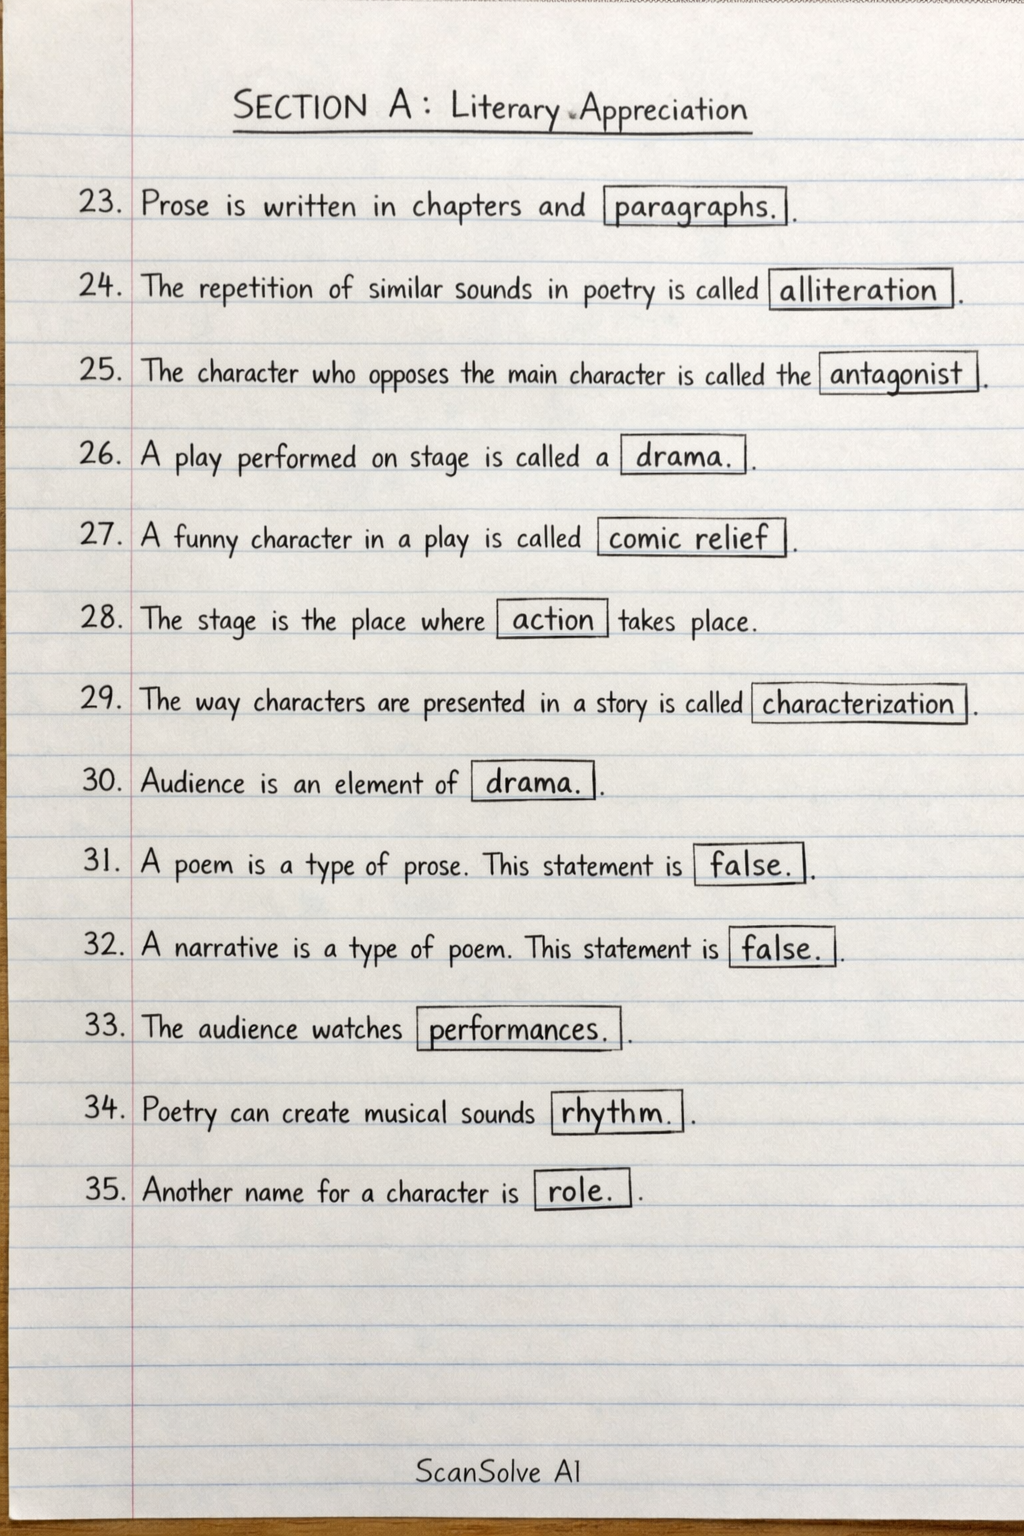 SECTION A: Literary Appreciation
23. Prose is written in chapters and paragraphs..
24. The repetition of similar sounds in poetry is called alliteration.
25. The character who opposes the main character is called the antagonist.
26. A play performed on stage is called a drama..
27. A funny character in a play is called comic relief.
28. The stage is the place where action takes place.
29. The way characters are presented in a story is called characterization.
30. Audience is an element of drama..
31. A poem is a type of prose. This statement is false..
32. A narrative is a type of poem. This statement is false..
33. The audience watches performances..
34. Poetry can create musical sounds rhythm..
35. Another name for a character is role..
ScanSolve AI